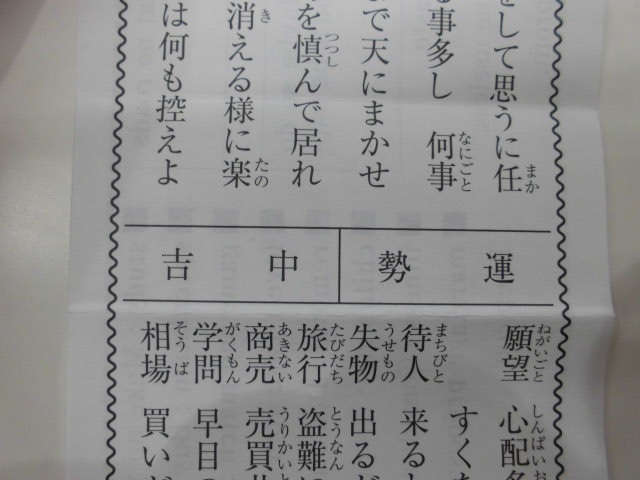 をして思うに任
る事多し 何事
で天にまかせ
を慎んで居れ
消える様に楽
は何も控えよ
運勢 中吉
願望 心配多
すくな
待人 来る
失物 出るが
旅行 盗難に
商売 売買共
学問 早目の
相場 買いが